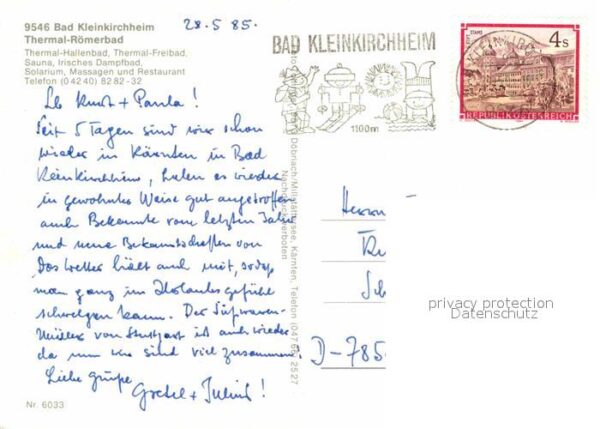 9546 Bad Kleinkirchheim
Thermal-Römerbad
Thermal-Hallenbad, Thermal-Freibad,
Sauna, Irisches Dampfbad,
Solarium, Massagen und Restaurant
Telefon (0 42 40) 82 82 - 32
28.5 85.
BAD KLEINKIRCHHEIM
1100m
4s
STAMS
REPUBLIK ÖSTERREICH
Lb Knut + Paula!
Seit 5 Tagen sind wir schon
wieder in Kärnten in Bad
Kleinkirchheim, haben es wieder
in gewohnter Weise gut angetroffen
auch Bekannte vom letzten Jahr
und neue Bekanntschaften von
Das Wetter hält auch mit, sodaß
man ganz im Urlaubsgefühl
schwelgen kann. Der Süßwaren-
Müller von Stuttgart ist auch wieder
da und wir sind viel zusammen.
Liebe Grüße
Gretel + Julius!
Döbriach/Millstättersee, Kärnten, Telefon
Nachdruck verboten
Herrn
D-785
privacy protection
Datenschutz
Nr. 6033